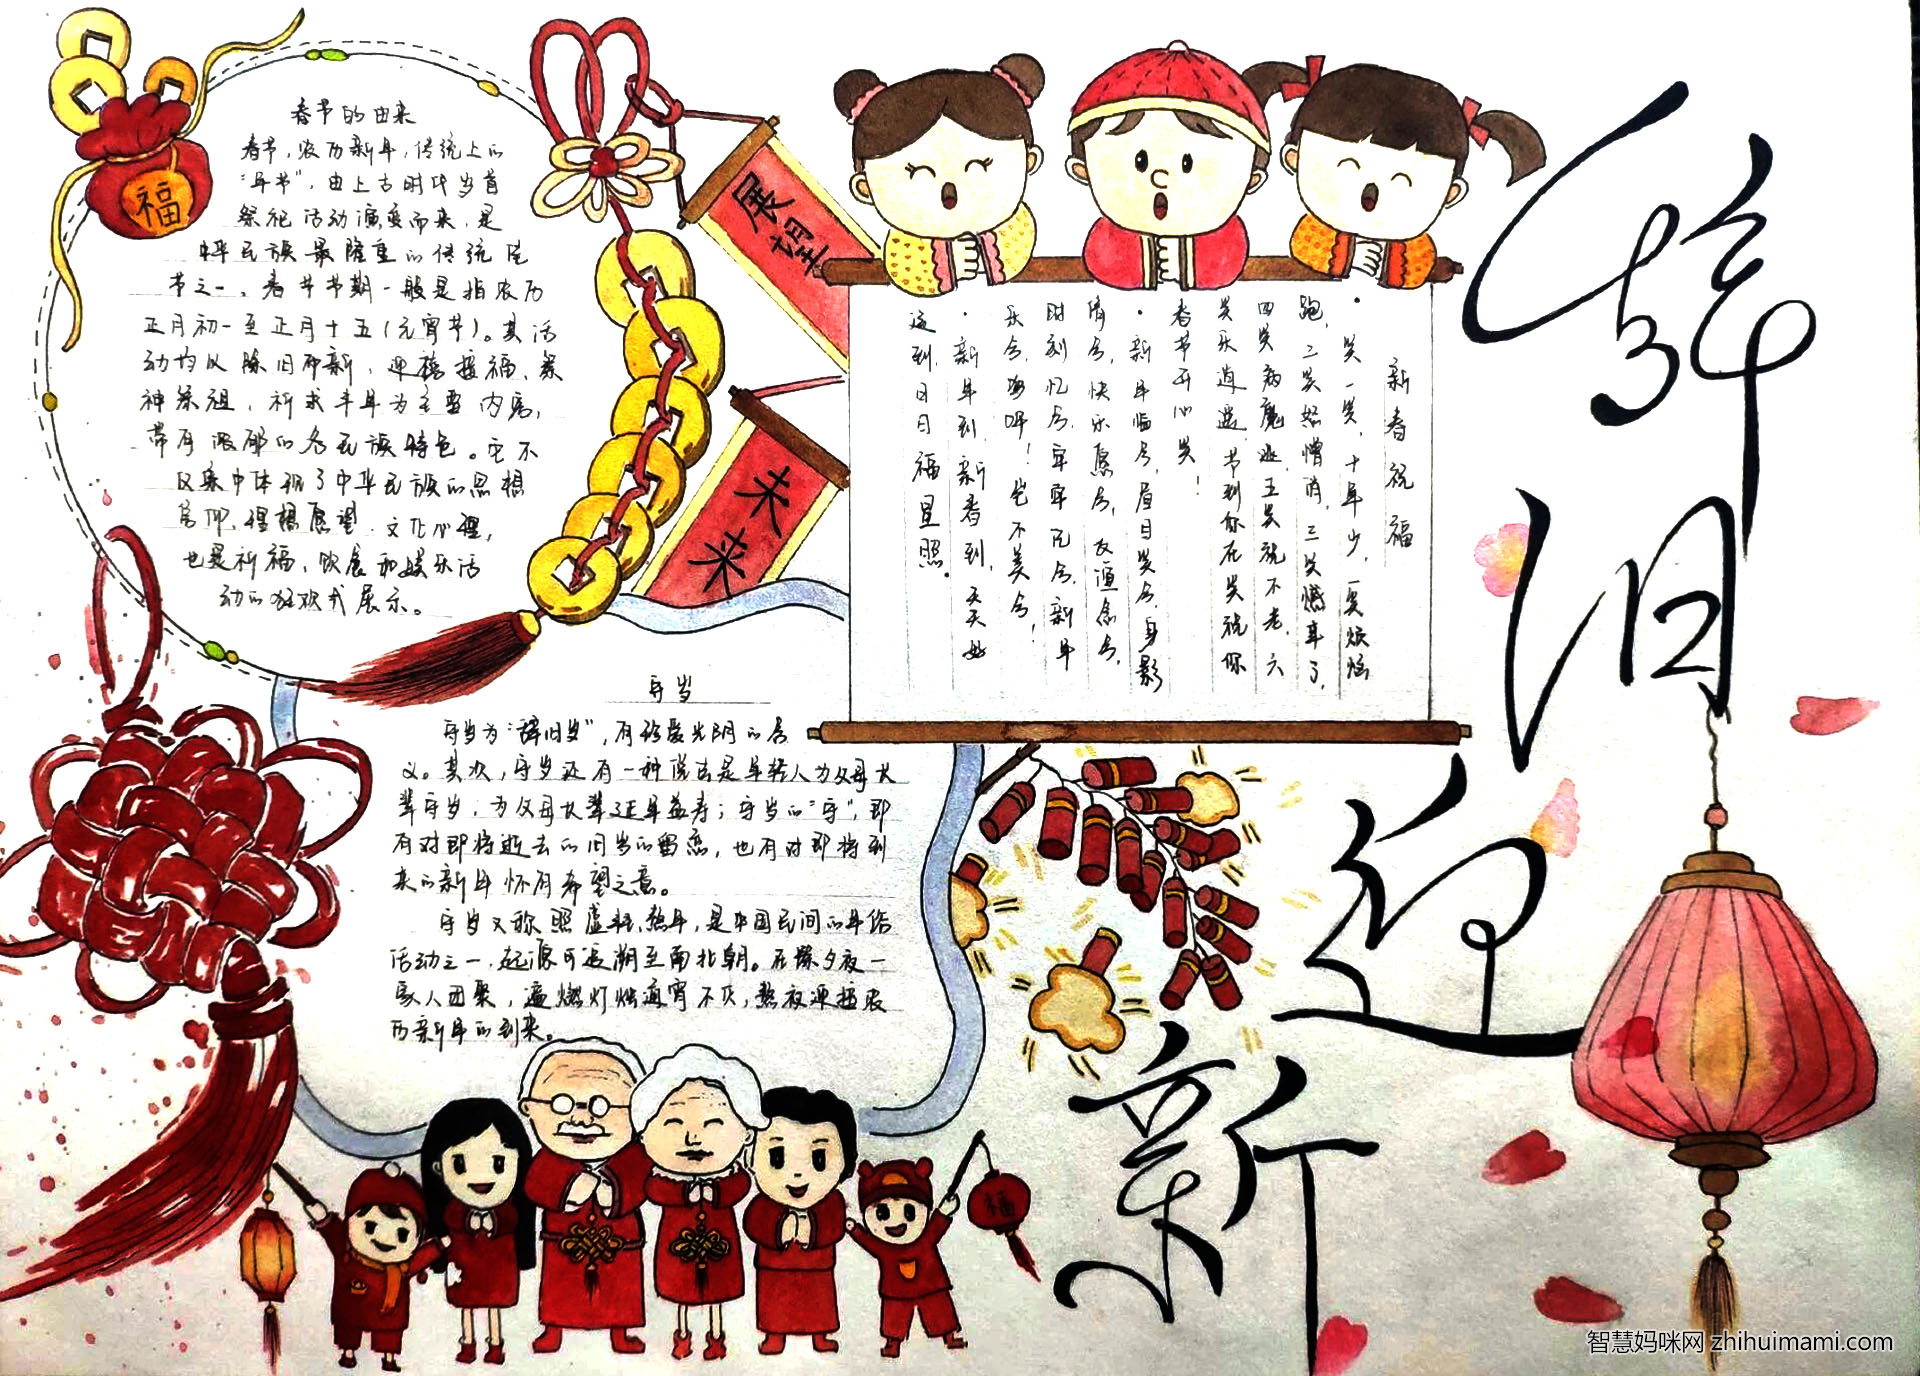 辞旧迎新
福
春节的由来
春节，农历新年，传统上的
“年节”，由上古时代岁首
祭祀活动演变而来，是
中华民族最隆重的传统佳
节之一。春节节期一般是指农历
正月初一至正月十五（元宵节）。其活
动均以除旧布新，迎禧接福、祭
神祭祖，祈求丰年为主要内容，
带有浓郁的各民族特色。它不
仅集中体现了中华民族的思想
信仰、理想愿望、文化心理，
也是祈福、饮食和娱乐活
动的狂欢式展示。
展望
未来
新春祝福
·笑一笑，十年少，一笑烦恼
跑，二笑怒憎消，三笑憾事了，
四笑病魔逃，五笑就不老，六
笑乐逍遥，节到你在笑祝你
春节开心笑！
·新年临兮，眉目笑兮，身影
倩兮，快乐愿兮，友谊念兮，
时刻忆兮，牢牢记兮，新年
乐兮，嗨呀！岂不美兮！
·新年到，新春到，天天好
运到，日日福星照。
守岁
守岁为“辞旧岁”，有珍爱光阴的含
义。其次，守岁还有一种说法是年轻人为父母长
辈守岁，为父母长辈延年益寿；守岁的“守”，即
有对即将逝去的旧岁的留恋，也有对即将到
来的新年怀有希望之意。
守岁又称照虚耗、熬年，是中国民间的年俗
活动之一，起源可追溯至南北朝。在除夕夜一
家人团聚，遍燃灯烛通宵不灭，熬夜迎接农
历新年的到来。
福
智慧妈咪网 zhihuimami.com